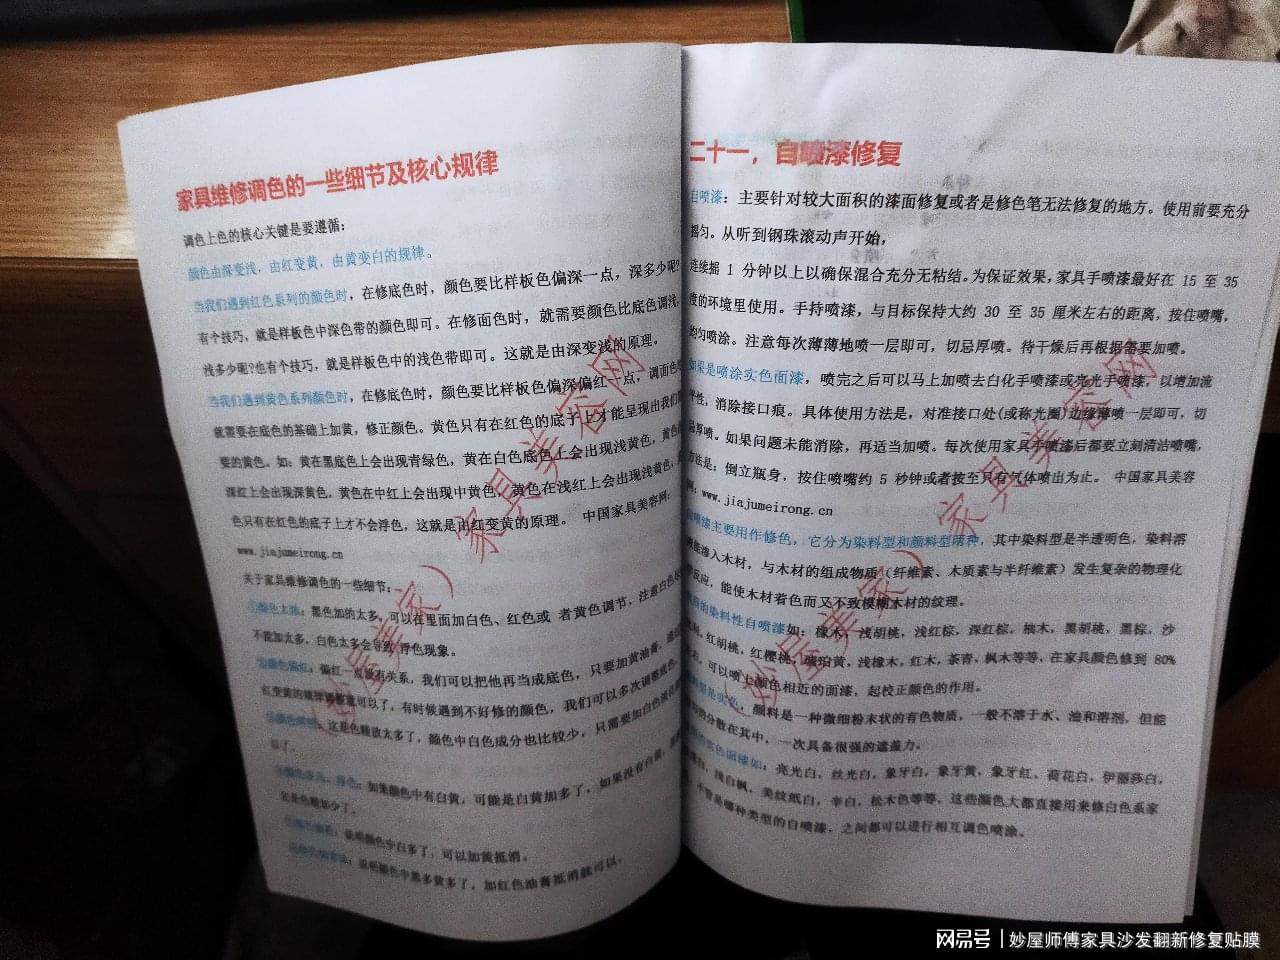 家具维修调色的一些细节及核心规律
调色上色的核心关键是要遵循：
颜色由深变浅，由红变黄，由黄变白的规律。
当我们遇到红色系列的颜色时，在修底色时，颜色要比样板色偏深一点，深多少呢?
有个技巧，就是样板色中深色带的颜色即可。在修面色时，就需要颜色比底色调浅，
浅多少呢?也有个技巧，就是样板色中的浅色带即可。这就是由深变浅的原理。
当我们遇到黄色系列颜色时，在修底色时，颜色要比样板色偏深偏红一点，调面色时
就需要在底色的基础上加黄，修正颜色。黄色只有在红色的底子上才能呈现出我们
要的黄色。如：黄在黑底色上会出现青绿色，黄在白色底色上会出现浅黄色，黄色
深红上会出现深黄色，黄色在中红上会出现中黄色，黄色在浅红上会出现浅黄色，
色只有在红色的底子上才不会浮色，这就是由红变黄的原理。 中国家具美容网：
www.jiajumeirong.cn
关于家具维修调色的一些细节：
①颜色太暗：黑色加的太多，可以在里面加白色、红色或 者黄色调节，注意白色
不能加太多，白色太多会导致 浮色现象。
②颜色偏红：偏红一点没有关系，我们可以把他再当成底色，只要加黄油膏，
红变黄的规律调整就可以了，有时候遇到不好修的颜色，我们可以多次调整底色。
这是色精放太多了，颜色中白色成分也比较少，只需要加白色
如果颜色中有白黄，可能是白黄加多了，如果没有白黄，
说明颜色中白多了，可以加黄抵消。
说明颜色中黑多黄多了，加红色油膏抵消就可以。
二十一，自喷漆修复
自喷漆：主要针对较大面积的漆面修复或者是修色笔无法修复的地方。使用前要充分
摇匀。从听到钢珠滚动声开始，
连续摇 1 分钟以上以确保混合充分无粘结。为保证效果，家具手喷漆最好在 15 至 35
度的环境里使用。手持喷漆，与目标保持大约 30 至 35 厘米左右的距离，按住喷嘴，
均匀喷涂。注意每次薄薄地喷一层即可，切忌厚喷。待干燥后再根据需要加喷。
如果是喷涂实色面漆，喷完之后可以马上加喷去白化手喷漆或亮光手喷漆，以增加流
平性，消除接口痕。具体使用方法是，对准接口处(或称光圈)边缘薄喷一层即可，切
忌厚喷。如果问题未能消除，再适当加喷。每次使用家具手喷漆后都要立刻清洁喷嘴，
方法是：倒立瓶身，按住喷嘴约 5 秒钟或者按至只有气体喷出为止。 中国家具美容
网：www.jiajumeirong.cn
自喷漆主要用作修色，它分为染料型和颜料型两种，其中染料型是半透明色，染料溶
能渗入木材，与木材的组成物质（纤维素、木质素与半纤维素）发生复杂的物理化
学反应，能使木材着色而又不致模糊木材的纹理。
的染料性自喷漆如：橡木，浅胡桃，浅红棕，深红棕，柚木，黑胡桃，黑棕，沙
红胡桃，红樱桃，琥珀黄，浅橡木，红木，茶青，枫木等等，在家具颜色修到 80%
左右，可以喷上颜色相近的面漆，起校正颜色的作用。
颜料是一种微细粉末状的有色物质，一般不溶于水、油和溶剂，但能
的分散在其中，一次具备很强的遮盖力。
的实色面漆如：亮光白，丝光白，象牙白，象牙黄，象牙红，荷花白，伊丽莎白，
浅白枫，美纹纸白，辛白，松木色等等，这些颜色大都直接用来修白色系家
不管是哪种类型的自喷漆，之间都可以进行相互调色喷涂。
（妙屋美家）家具美容网
（妙屋美家）家具美容网
网易号 | 妙屋师傅家具沙发翻新修复贴膜